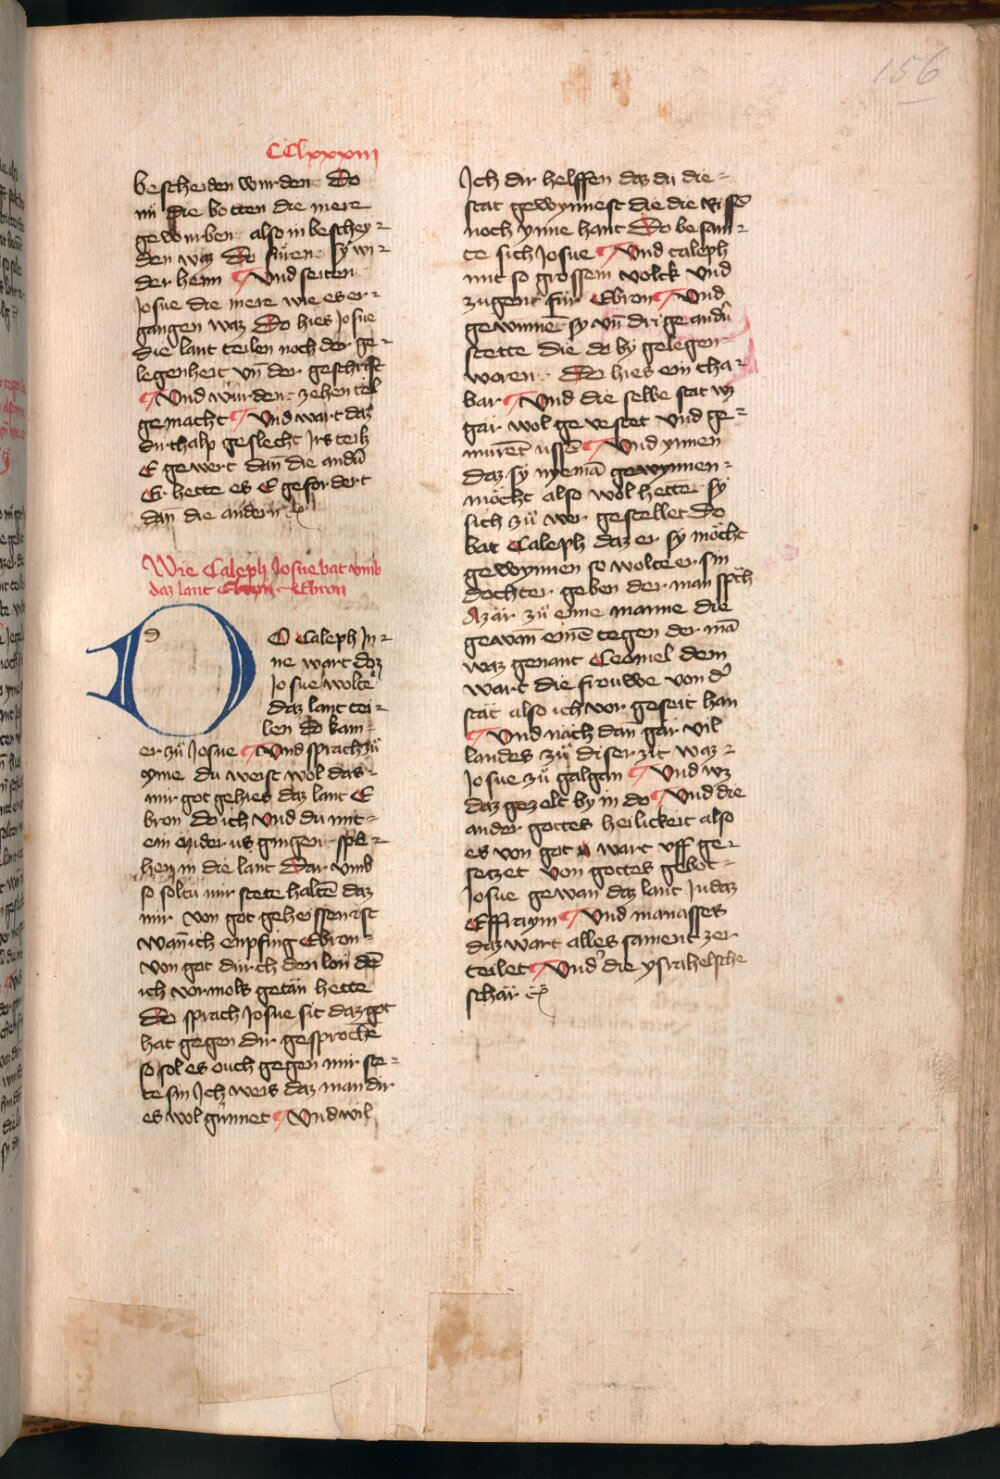 156
CClxxxiii
bescheiden wurden Do
nü die botten die mere
gewurben also in beschey-
den waz Do füren sy wi-
der heim Und seiten
Josue die mere wie es er-
gangen waz Do hies Josue
die lant teilen noch der ge-
legenheit vn̄ der geschrift
Und würden zehen teil
gemacht Und wart daz
dirthalp geslecht Irs teilz
E gewert dan̄ die andn̄
Er hette es E gefordert
dan̄ die andern
Wie Caleph Josue bat vmb
daz lant Ebron
DO Caleph In-
ne wart daz
Josue wolte
daz lant tei-
len do kam
er zü Josue Und sprach zü
yme du weist wol das
mir got gehies daz lant E
bron do ich Und du mit-
ein ander us gingen spe-
hen in die lant Dar vmb
so soltu mir stete haltē daz
mir von got geheissen ist
Wan̄ ich enpfing Ebron
von got durch den lon dē
ich vormols getan hette
Do sprach Josue sit daz got
hat gegen dir gesprochē
so sol es ouch gegen mir ste-
te sin Ich weis daz man dir
es wol günnet Und wil
Ich dir helffen daz du die
stat gewynnest die die
noch ynne hant Do besam-
te sich Josue Und Caleph
mit so grossem volck Und
zugent für Ebron Und
gewinnēt sy vn̄ drige andn̄
stette die do by gelegen
woren Do hies ein Cha-
bar Und die selbe stat wz
gar wol gevestet Und ge-
murēt ussē Und ynnen
daz sy nyemā gewynnen
möcht also wol hette sy
sich zü wer gestellet Do
bat Caleph daz er sy möcht
gewynnen so wolte er sin
dochter geben der man sp̄ch
Azar zü eime manne die
gewan̄ einē tegen der mā
waz genant Ceoniel dem
wart die frouwe von d'
stat also ich vor geseit han
Und nach dan̄ gar vil
landes zü diser zit waz
Josue zü galgan Und wz
daz gezelt by in do Und die
ander gottes heilickeit also
es von got wart vff ge-
setzet von gottes gebot
Josue gewan daz lant Judaz
Effraym Und manasses
daz wart alles sament zer
teilet Und die ysrahelsche
schar